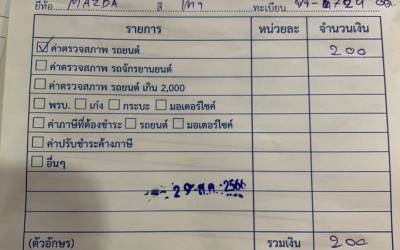 ยี่ห้อ MAZDA สี เทา ทะเบียน
รายการ หน่วยละ จำนวนเงิน
ค่าตรวจสภาพ รถยนต์ 200
ค่าตรวจสภาพ รถจักรยานยนต์
ค่าตรวจสภาพ รถยนต์ เกิน 2,000
พรบ. เก๋ง กระบะ มอเตอร์ไซค์
ค่าภาษีที่ต้องชำระ รถยนต์ มอเตอร์ไซค์
ค่าปรับชำระค้างภาษี
อื่นๆ
2 9 ส.ค. 2566
(ตัวอักษร) รวมเงิน 200